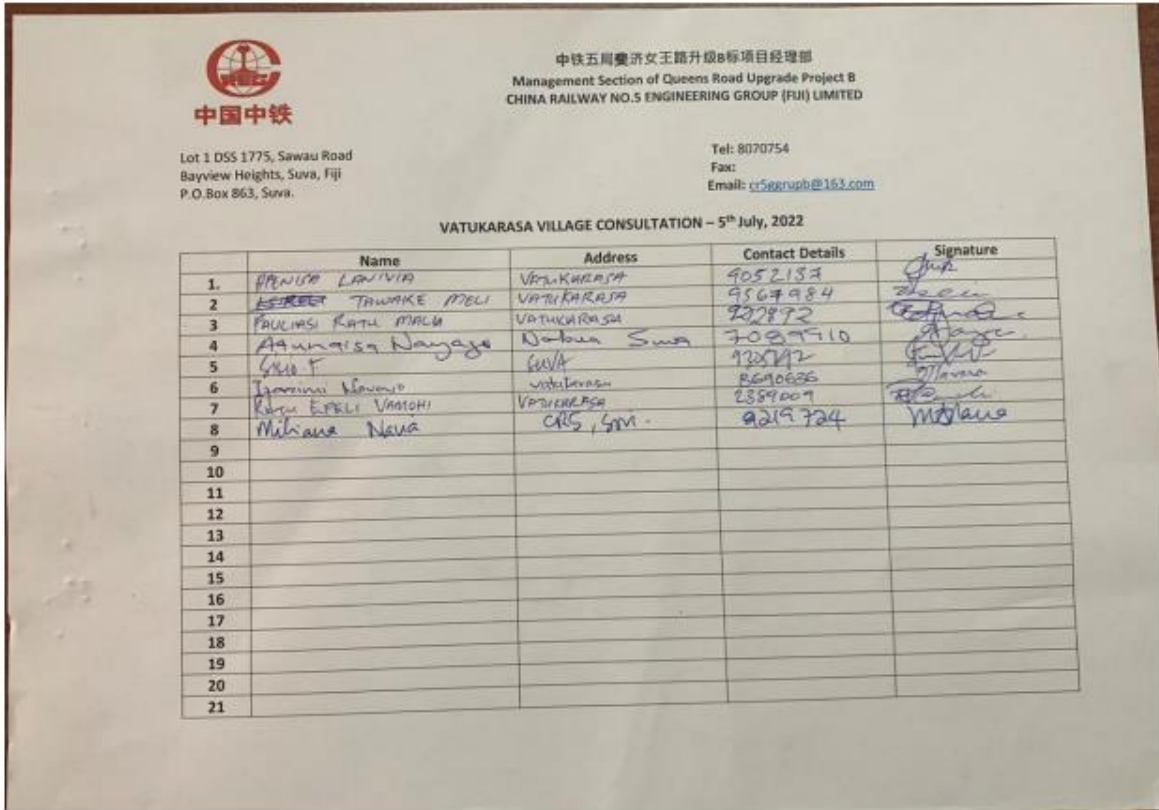 中国中铁
中铁五局斐济女王路升级B标项目经理部
Management Section of Queens Road Upgrade Project B
CHINA RAILWAY NO.5 ENGINEERING GROUP (FIJI) LIMITED
Lot 1 DSS 1775, Sawau Road
Bayview Heights, Suva, Fiji
P.O.Box 863, Suva.
Tel: 8070754
Fax:
Email: cr5ggrupb@163.com
VATUKARASA VILLAGE CONSULTATION – 5th July, 2022
Name Address Contact Details Signature
1. APENISA LANIVIA VATUKARASA 9052137
2 TAWAKE MELI VATUKARASA 9567984
3 PAULIASI RATU MALU VATUKARASA 922892
4 Nabua Suva 7089910
5 SUVA
6 Vatukarasa 8690636
7 RATU EPELI VATUKARASA 2359009
8 Miliana Nava CR5, SM. 9219724
9
10
11
12
13
14
15
16
17
18
19
20
21